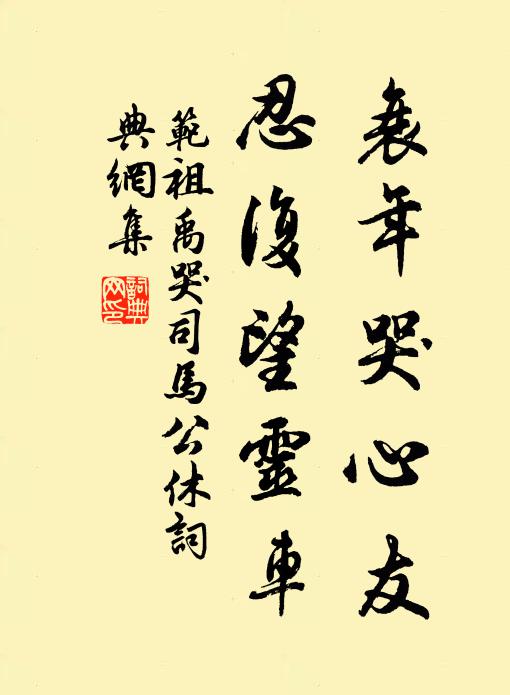 衰年哭心友
忍復望靈車
範祖禹哭司馬公休詞
典網集
詞典
网印